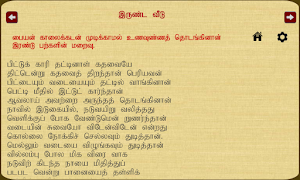 இருண்ட வீடு
பையன் காலைக்கடன் முடிக்காமல் உணவுண்ணத் தொடங்கினான்
இரண்டு பற்களின் மறைவு.
பிட்டுக் காரி தட்டினாள் கதவையே
திட்டென்று கதவைத் திறந்தான் பெரியவன்
பிட்டையும் வடையையும் தட்டில் வாங்கினான்
பெட்டி மீதில் இட்டுட் கார்ந்தான்
ஆவலாய் அவற்றை அருந்தத் தொடங்கினான்
நாவில் இடுகையில், நடுவயிறு வலித்தது
வெளிக்குப் போக வேண்டுமென் றுணர்ந்தான்
வடையின் சுவையோ விடேன்விடேன் என்றது
கொல்லை நோக்கிச் செல்லவும் துடித்தான்.
மெல்லும் வடையை விழுங்கவும் துடித்தான்
வில்லம்பு போல மிக விரை வாக
நடுவிற் கிடந்த நாயை மிதித்துப்
படபட வென்று பானையைத் தள்ளிக்